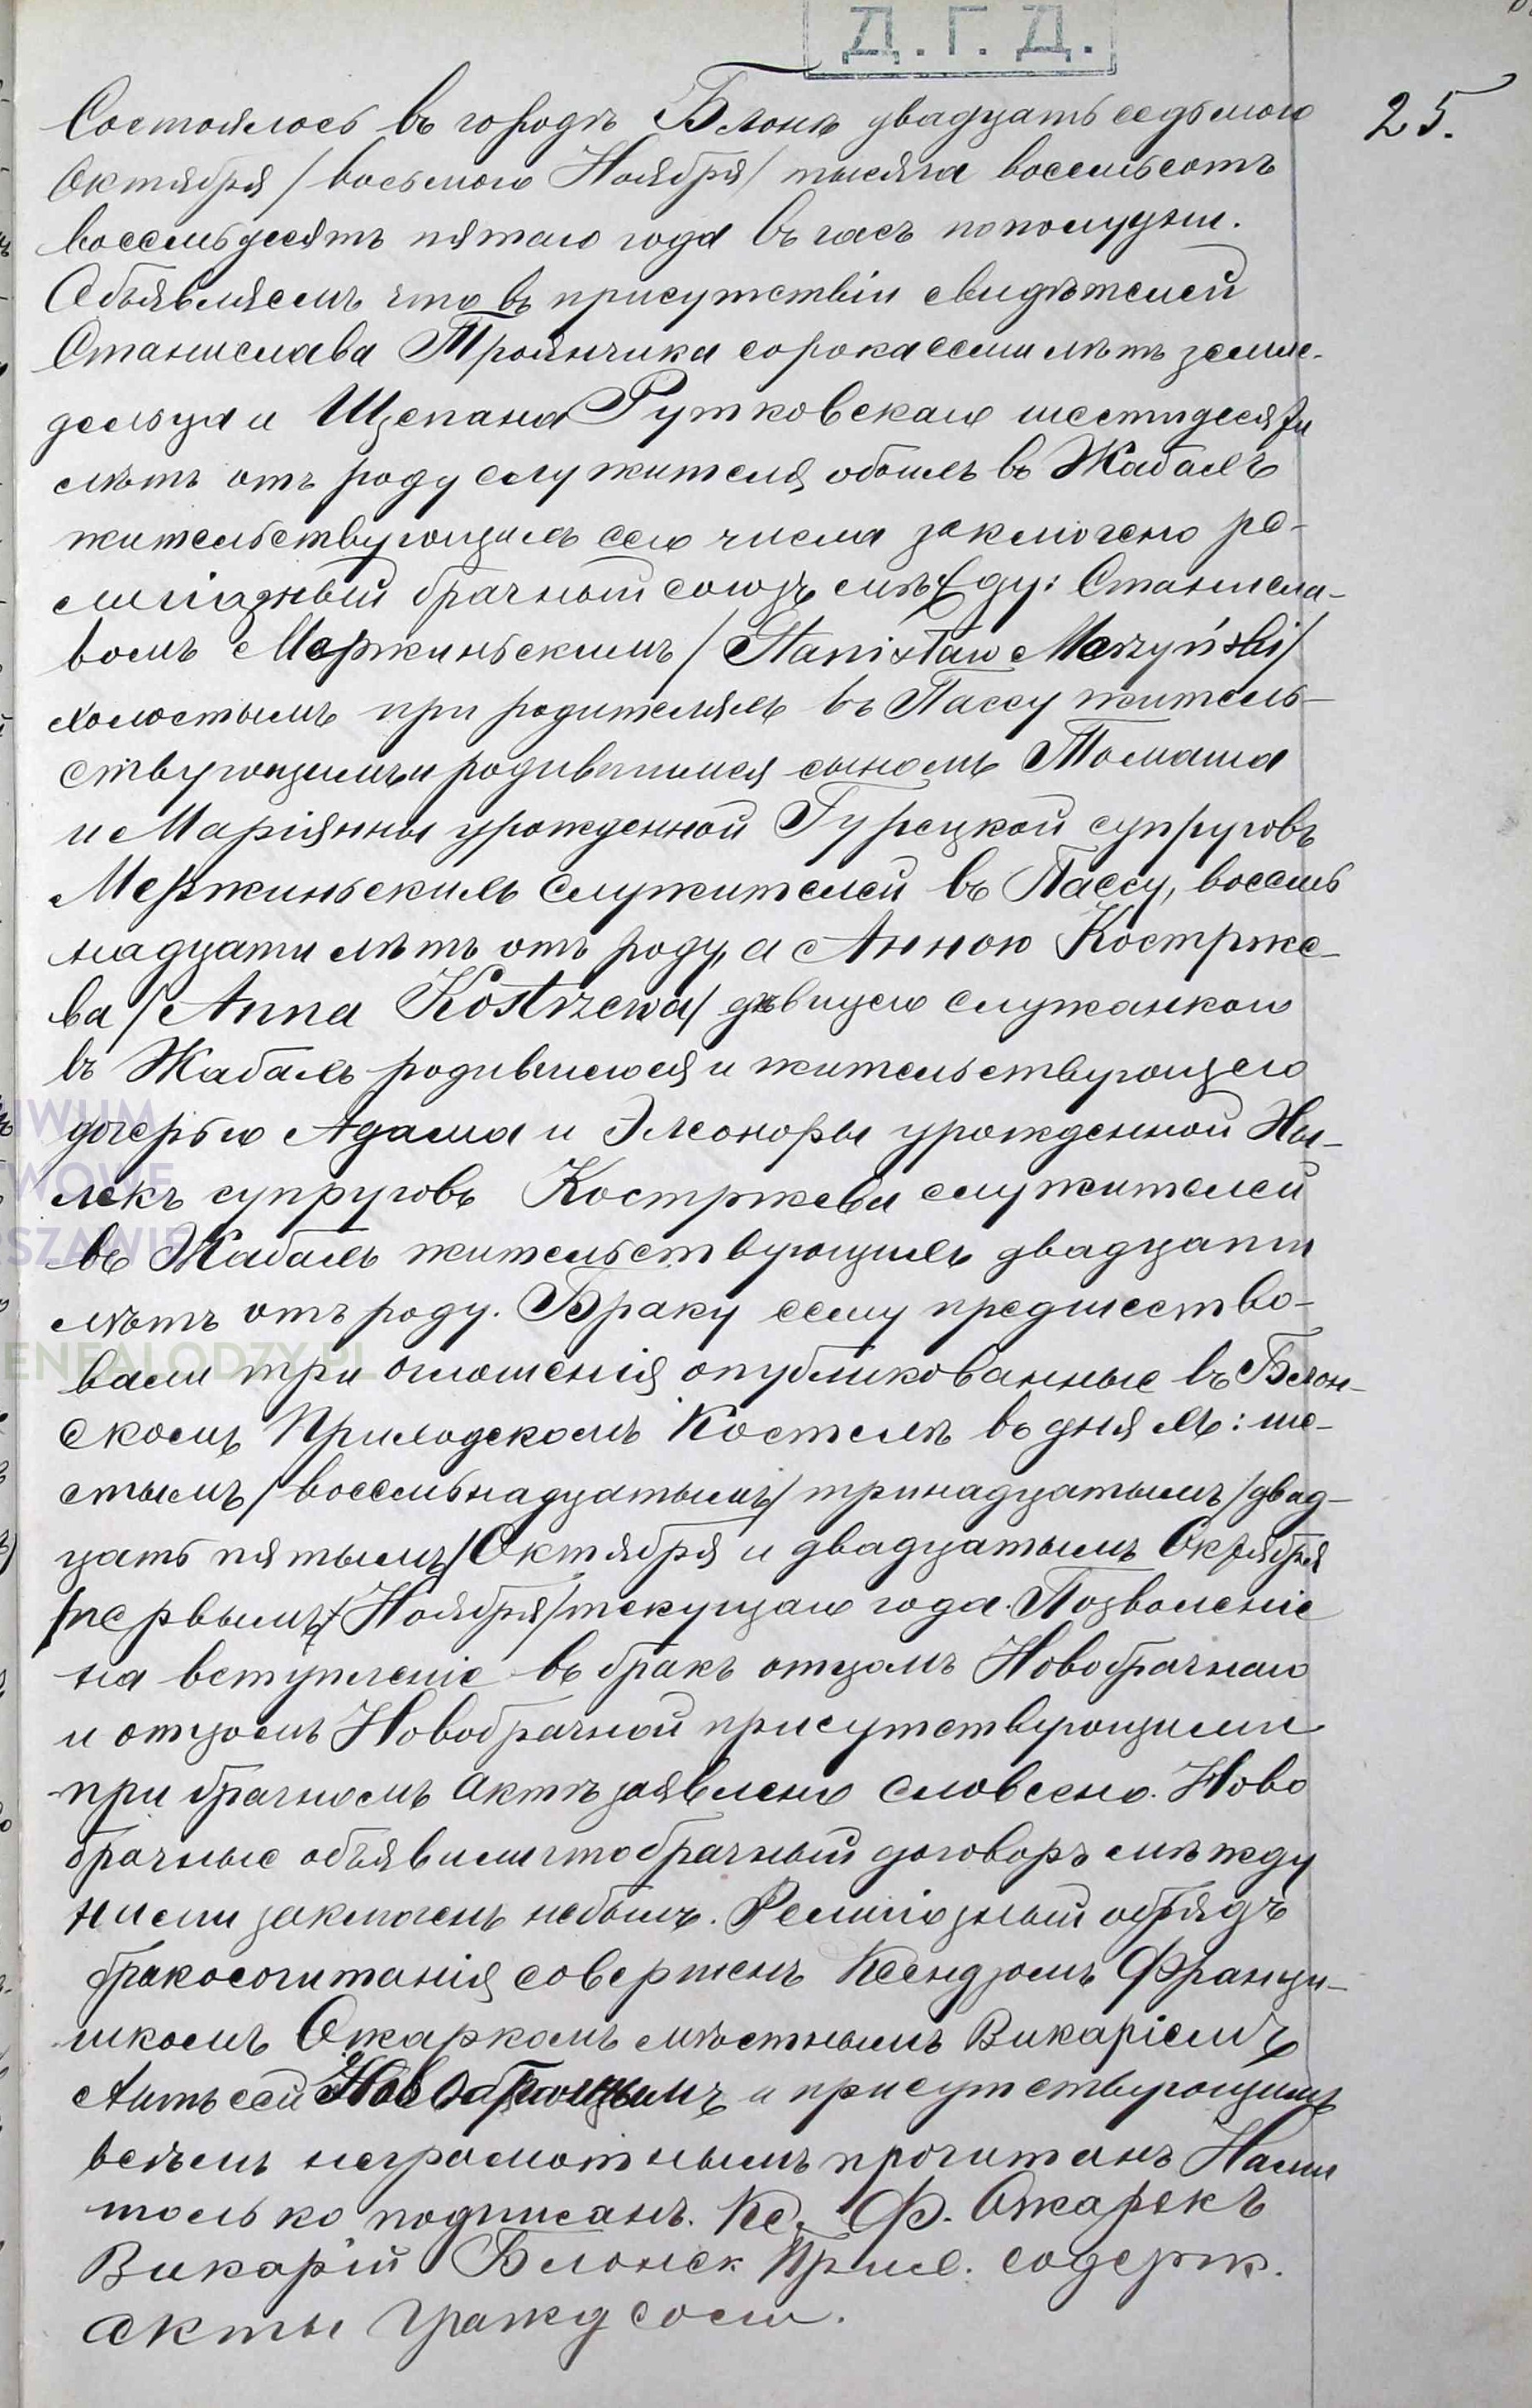 Д. Г. Д.
25.
Состоялось въ городѣ Блонѣ двадцать седьмого
Октября /восьмого Ноября/ тысяча восемьсотъ
восемьдесятъ пятаго года въ часъ пополудни.
Объявляемъ что въ присутствіи свидѣтелей
Станислава Тройнчика сорока семи лѣтъ земле-
дельца и Щепана Рутковскаго шестидесяти
лѣтъ отъ роду служителя, обоихъ въ Жабахъ
жительствующихъ сего числа заключено ре-
лигіозный брачный союзъ между: Станисла-
вомъ Мержиньскимъ /Stanisław Merzyński/
холостымъ при родителяхъ въ Пассу житель-
ствующимъ и родившимся сыномъ Томаша
и Маріянны урожденной Гурецкой супруговъ
Мержиньскихъ служителей въ Пассу, восемь
надцати лѣтъ отъ роду, а Анною Кострже-
ва /Anna Kostrzewa/ дѣвицею служанкою
въ Жабахъ родившеюся и жительствующею
дочерью Адама и Элеоноры урожденной Ны-
лекъ супруговъ Костржева служителей
въ Жабахъ жительствующихъ двадцати
лѣтъ отъ роду. Браку сему предшество-
вали три оглошенія опубликованные въ Блон-
скомъ Приходскомъ Костелѣ въ дняхъ: ше-
стымъ /восемьнадцатымъ/ тринадцатымъ /двад-
цать пятымъ/ Октября и двадцатымъ Октября
/первымъ Ноября/ текущаго года. Позволеніе
на вступленіе въ бракъ отцомъ Новобрачнаго
и отцомъ Новобрачной присутствующими
при брачномъ актѣ заявлено словесно. Ново
брачные объявили что брачный договоръ между
ними заключенъ небылъ. Религіозный обрядъ
бракосочитанія совершенъ Ксендзомъ Франци-
шкомъ Ожаркомъ мѣстнымъ Викаріемъ
Актъ сей Новобрачнымъ и присутствующимъ
всѣмъ неграмотнымъ прочитанъ Нами
только подписанъ. Кс. Ф. Ожарекъ
Викарій Блонск Прих. содерж.
акты гражд сост.